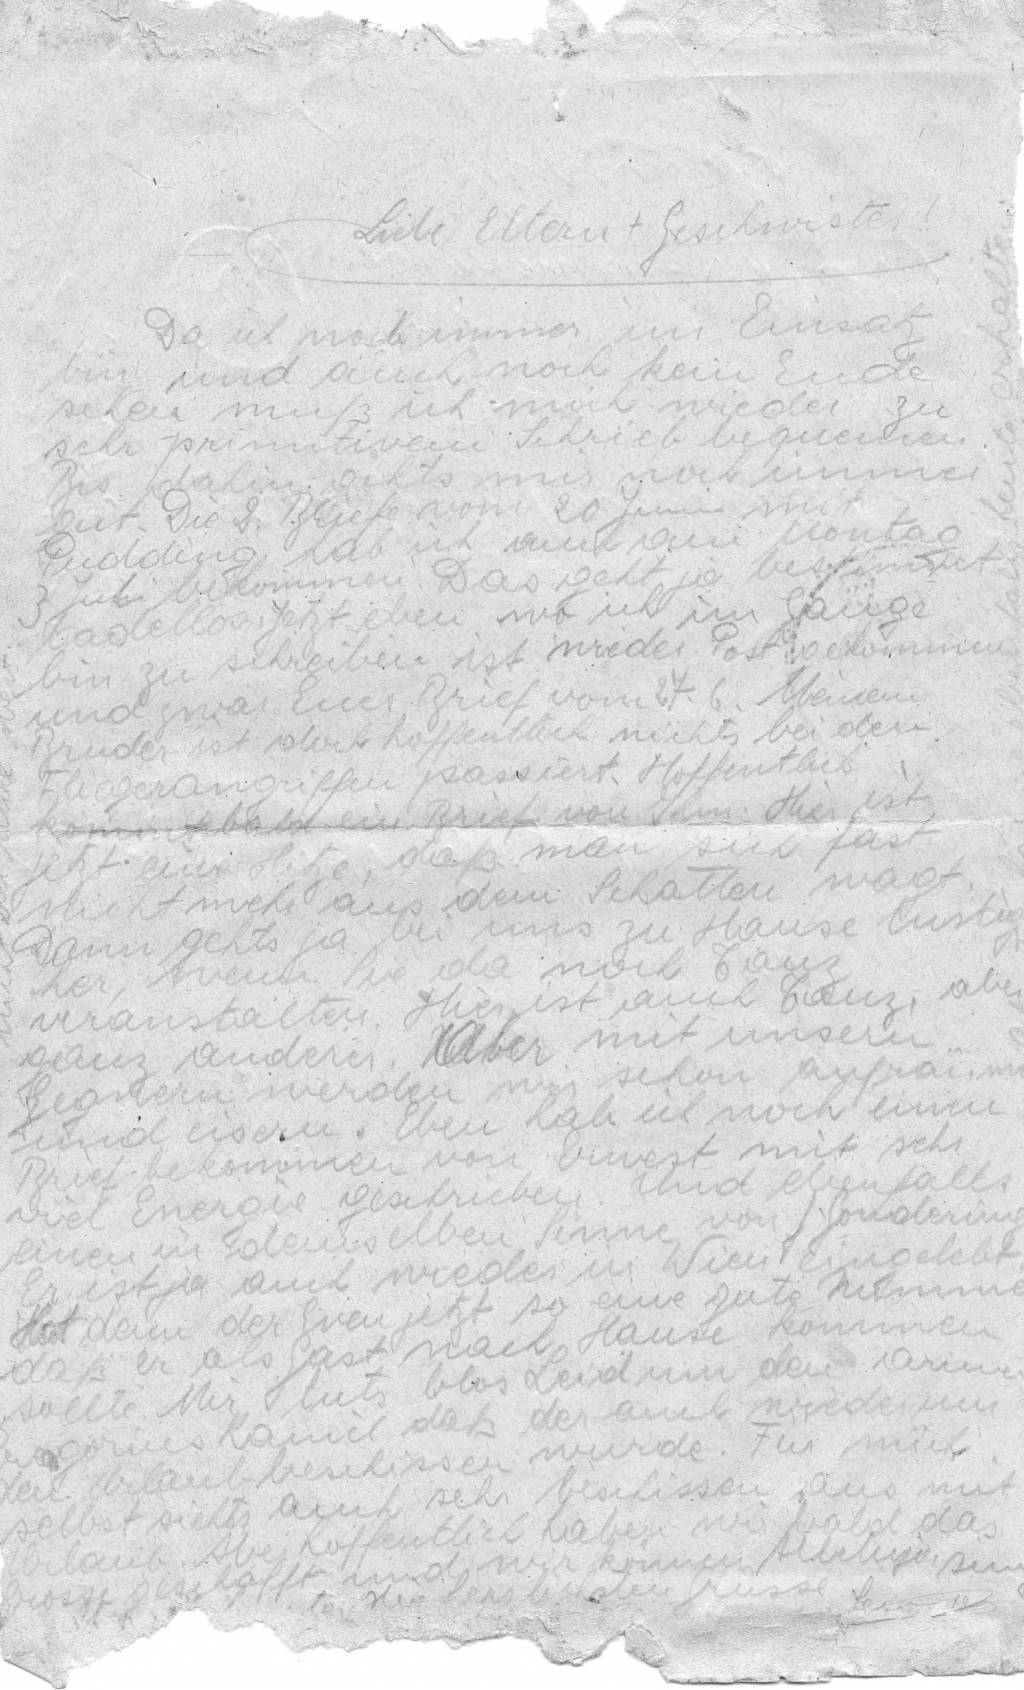 Liebe Eltern + Geschwister!
Da ich noch immer im Einsatz
bin und auch noch kein Ende
sehen muß ich mich wieder zu
sehr primitivem Schrieb bequemen.
Bis dahin gehts mir noch immer
gut. Die 2. Briefe vom 20 Juni mit
Pudding hab ich auch am Montag
3 Juli bekommen. Das geht ja bestimmt
tadellos. Jetzt eben wo ich im Gange
bin zu schreiben ist wieder Post gekommen
und zwar Euer Brief vom 27. 6. Meinem
Bruder ist doch hoffentlich nichts bei den
Fliegerangriffen passiert. Hoffentlich
kommt bald ein Brief von Ihm. Hier ist
jetzt eine Hitze, daß man sich fast
nicht mehr aus dem Schatten wagt.
Dann gehts ja bei uns zu Hause lustig
her, wenn Sie da noch Tanz
veranstalten. Hier ist auch Tanz, aber
ganz anderer. Aber mit unsern
Gegnern werden wir schon aufräumen
und eisern. Eben hab ich noch einen
Brief bekommen von Ernest mit sehr
viel Energie geschrieben. Und ebenfalls
einen in demselben Sinne von
Er ist ja auch wieder in Wien eingelebt.
Hat denn der jetzt so eine gute Nummer
daß er als Gast nach Hause kommen
sollte. Mir tuts blos Leid um den armen
Kamiel daß der auch wieder um
den Urlaub beschissen wurde. Für mich
selbst siehts auch sehr beschissen aus mit
Urlaub. Aber hoffentlich haben wir bald das
geschafft und wir können
Die herzlichsten Grüsse